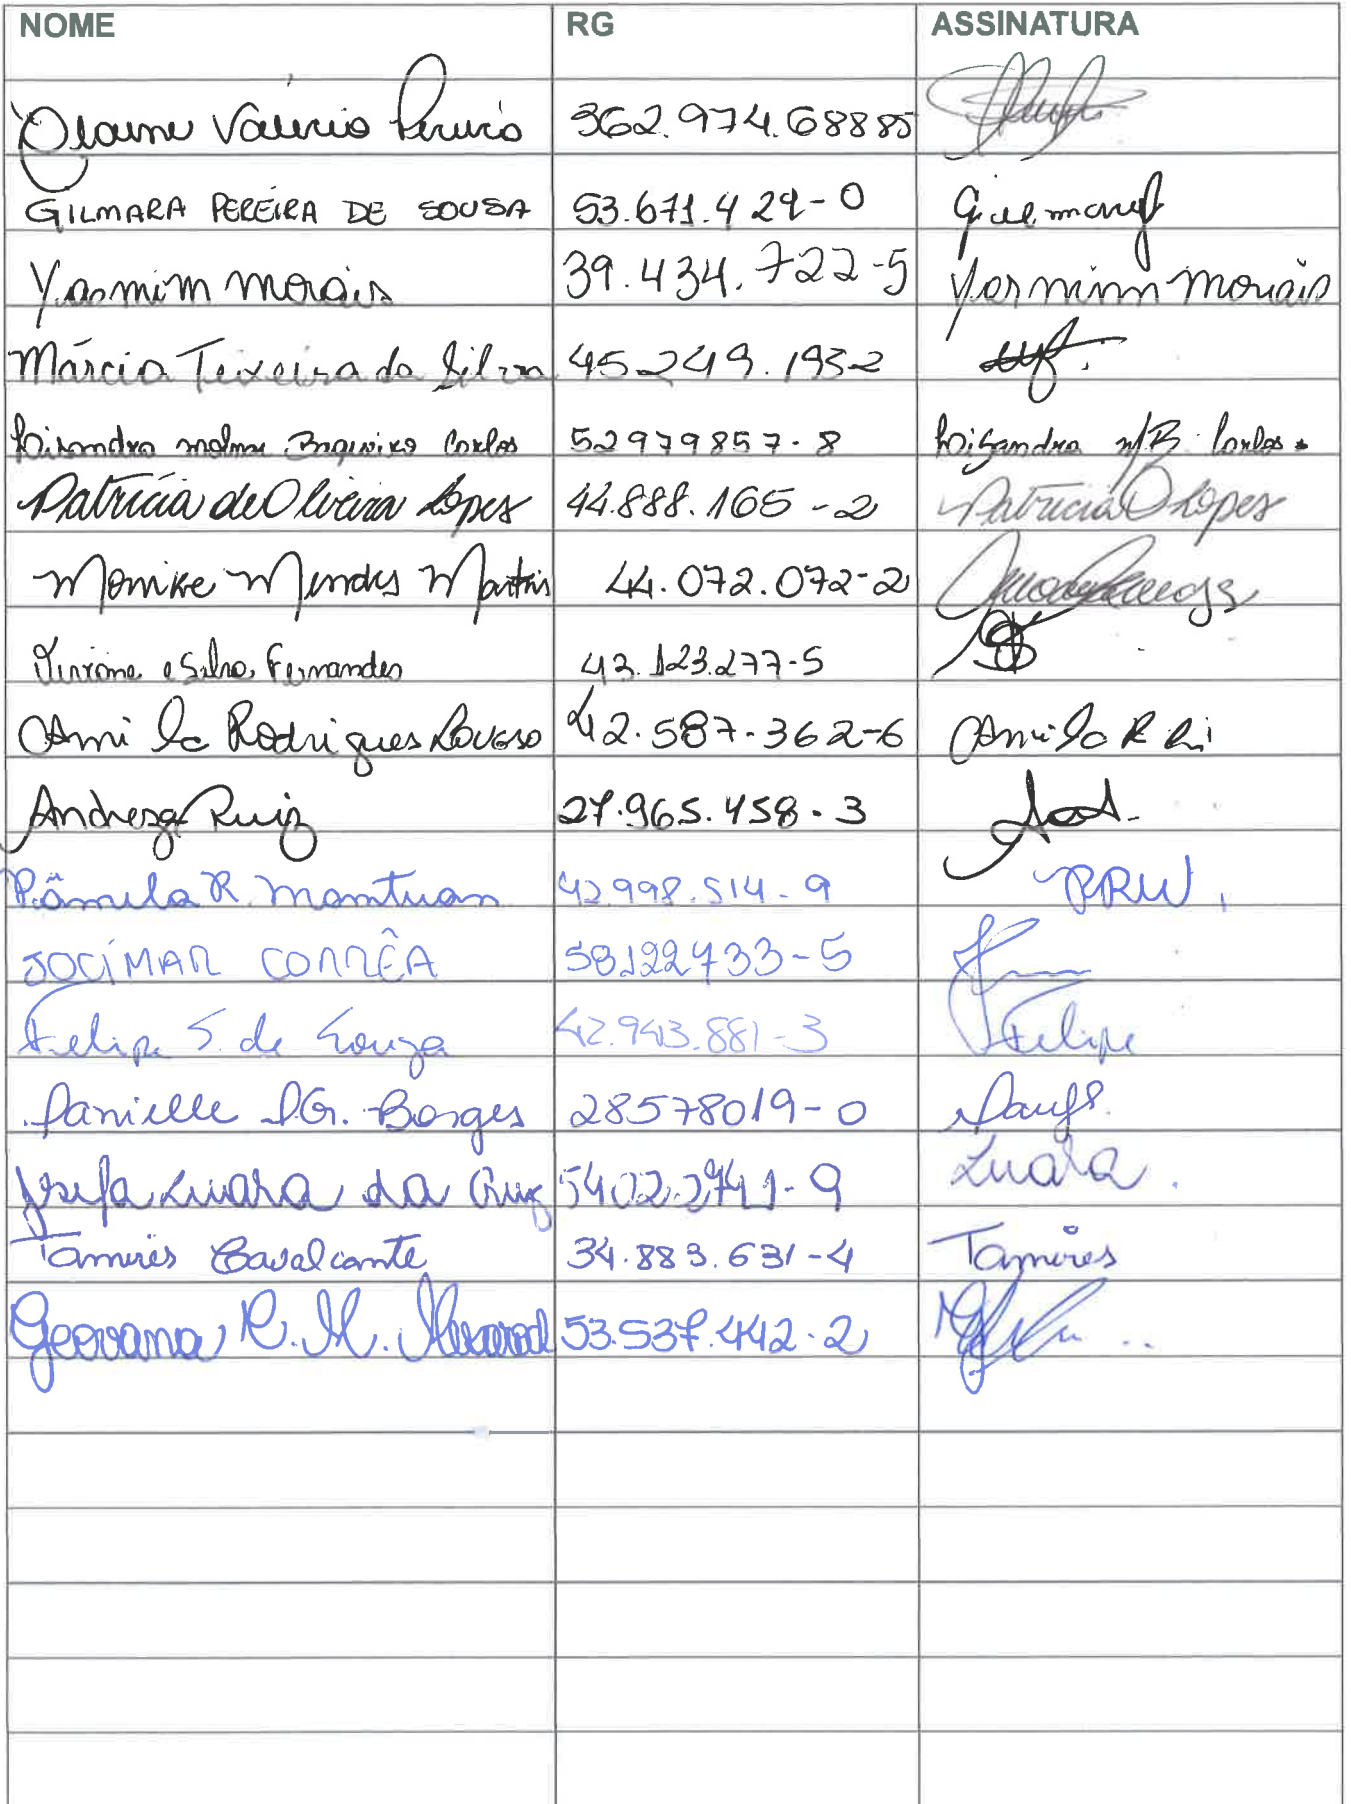 NOME RG ASSINATURA
Valério 362.974.68885
GILMARA PEREIRA DE SOUSA 53.671.429-0
Yasmim Morais 39.434.722-5 Yasmim Morais
Márcia Teixeira da Silva 45249.193-2
Lisandra Baqueiro Carlos 52979857-8 Lisandra M B. Carlos
Patrícia de Oliveira Lopes 44.888.165-2 Patricia O Lopes
Monike Mendes Martins 44.072.072-2
e Silva Fernandes 43.123.277-5
Camila Rodrigues 42.587.362-6 Camila R
Andreza Ruiz 27.965.458-3
Pâmela R. Mantuan 42.998.514-9 PRM
JOCIMAR CORRÊA 58122933-5
Felipe S. de Souza 42.943.881-3 Felipe
Danielle D.G. Borges 28578019-0
Josefa Luara da Cruz Luara
Tamires Cavalcante 34.883.631-4 Tamires
Geovana R. M. 53.537.442-2